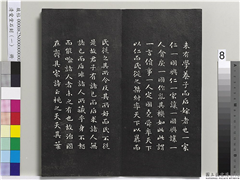 未有學養子而后嫁者也一家
仁一國興仁一家讓一國興讓
一人貪戾一國作亂其機如此此謂
一言僨事一人定國堯舜率天下
以仁而民從之桀紂率天下以暴而
民從之其所令反其所好而民不從
是故君子有諸己而后求諸人
無諸己而后非諸人所藏乎身不恕
而能喻諸人者未之有也故治國
在齊其家詩云桃之夭夭其葉
8